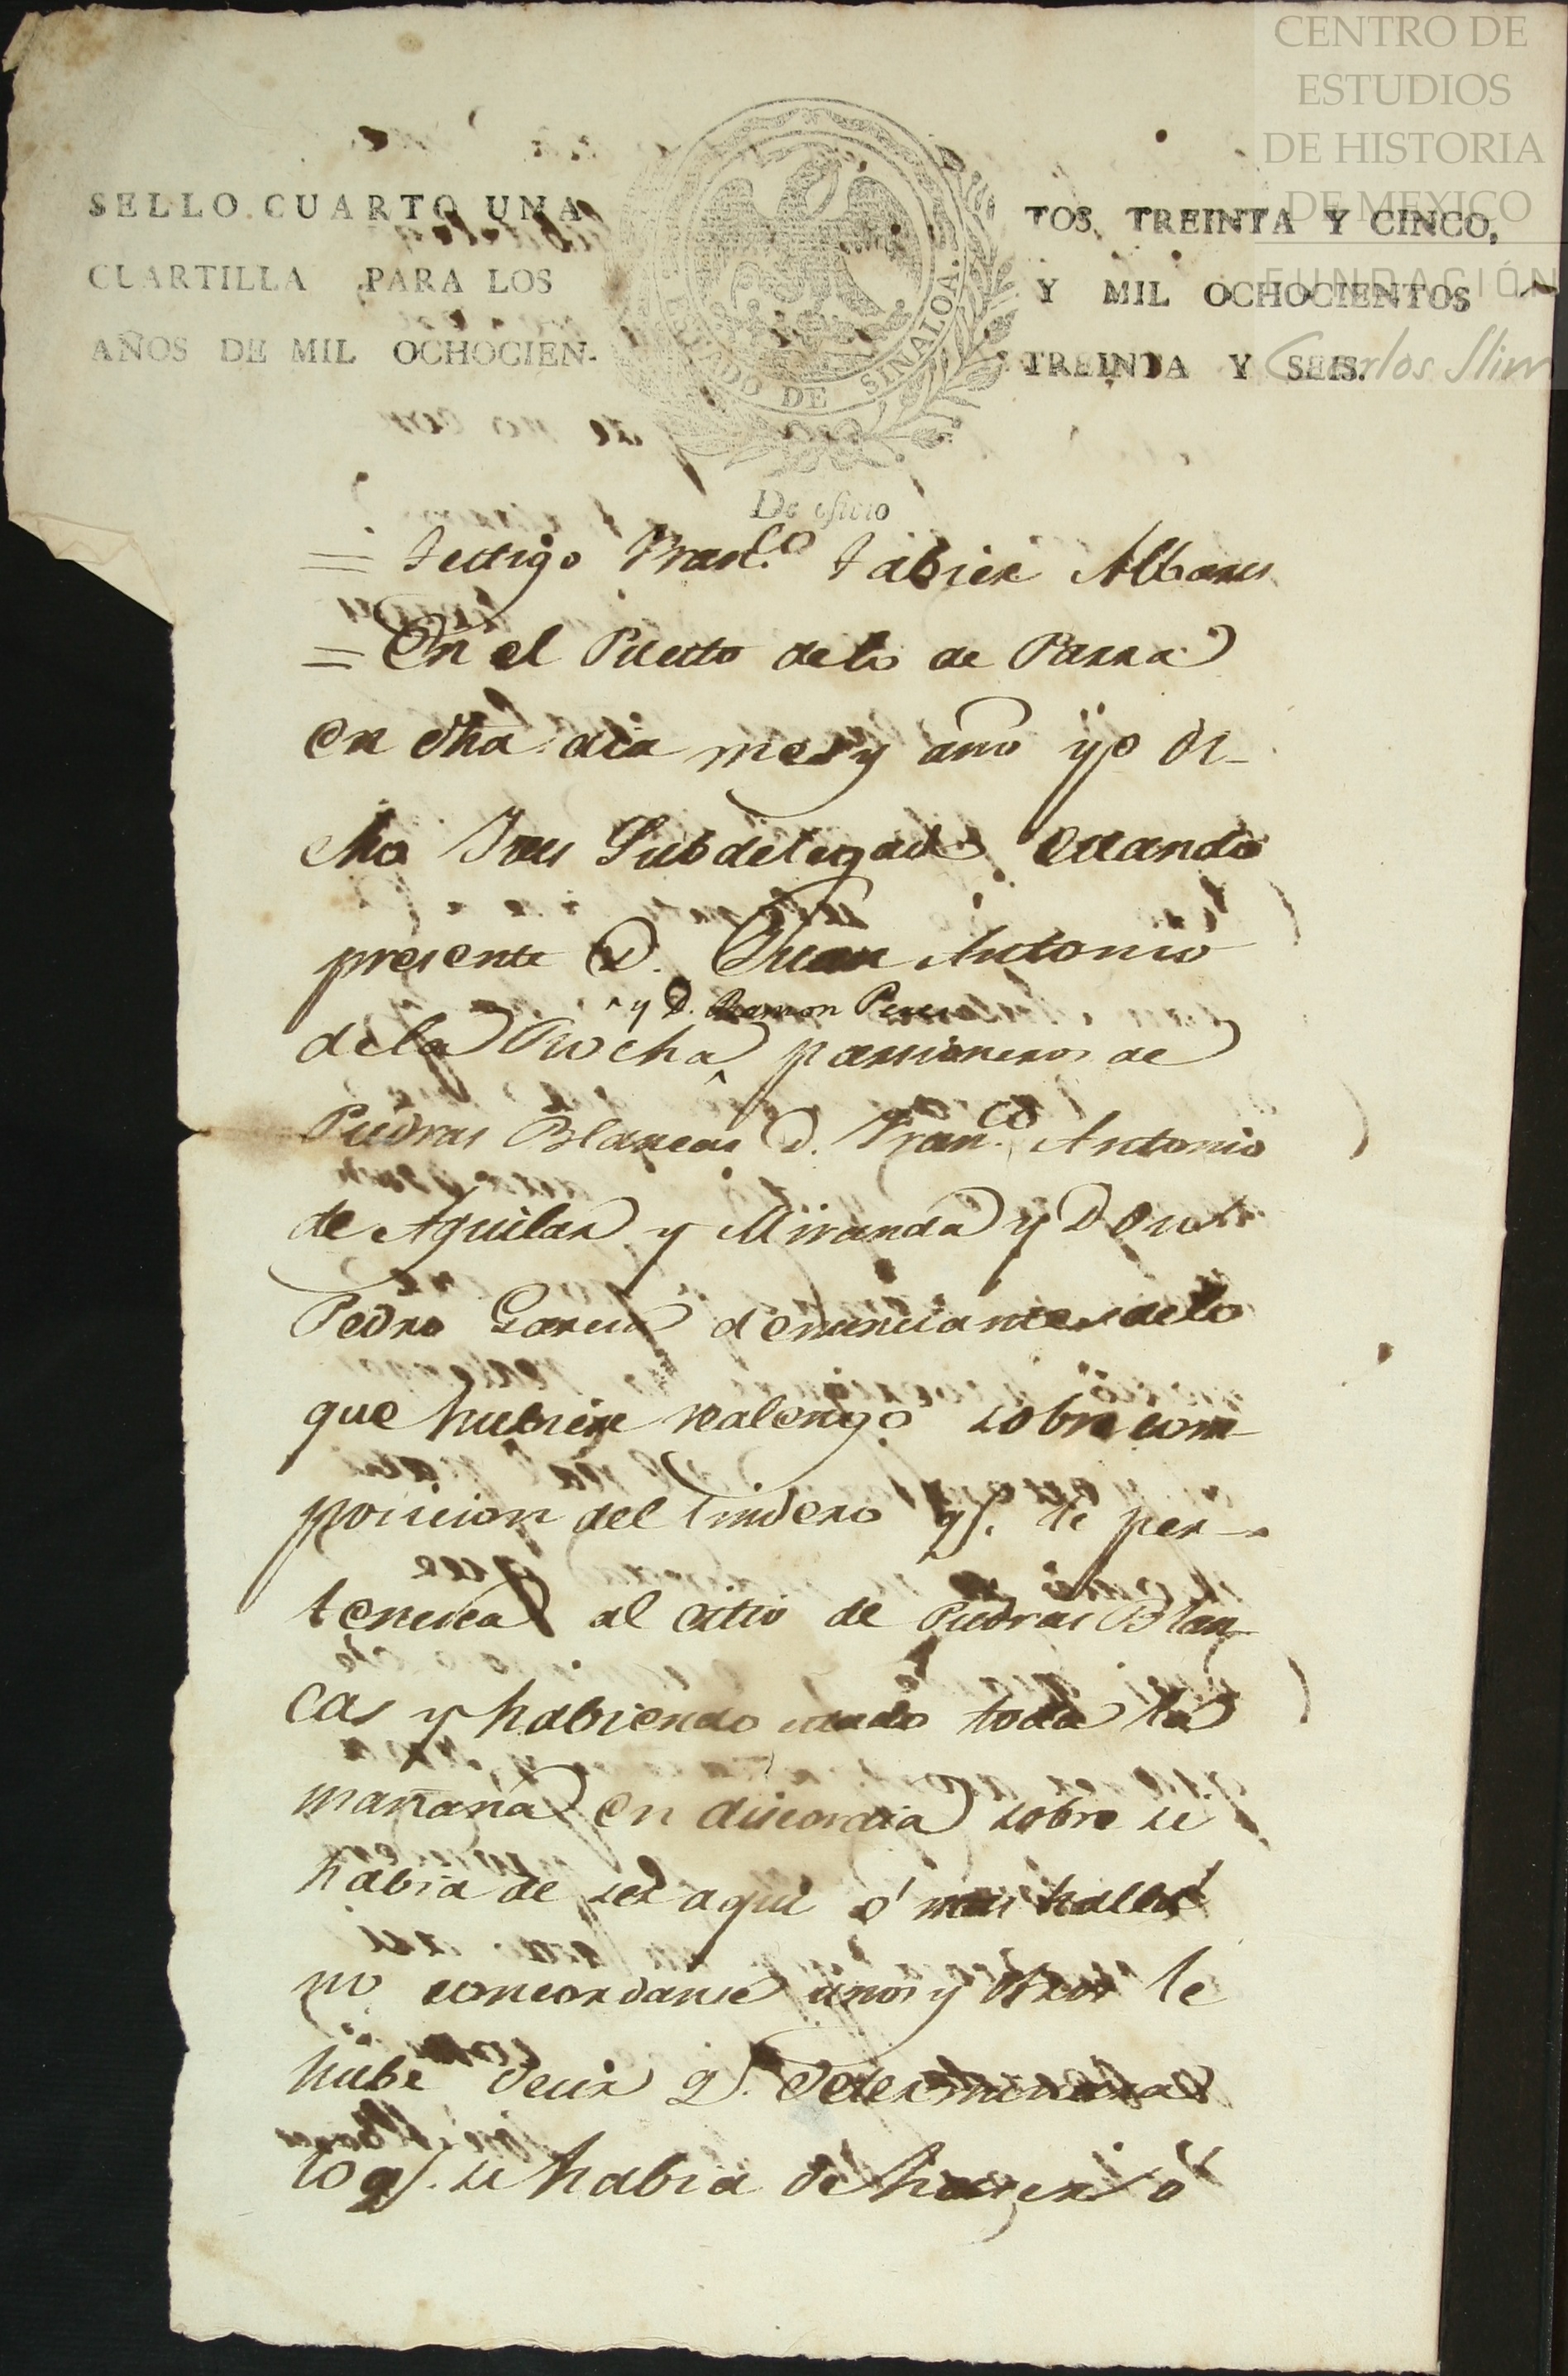 CENTRO DE
ESTUDIOS
DE HISTORIA
DE MEXICO
FUNDACIÓN
Carlos Slim
SELLO CUARTO UNA
CUARTILLA PARA LOS
AÑOS DE MIL OCHOCIEN-
ESTADO DE SINALOA.
TOS, TREINTA Y CINCO,
Y MIL OCHOCIENTOS
TREINTA Y SEIS.
De oficio
= testigo Fran.co Jabier Albares
= En el Puesto de lo de Parra
en dha dia mes y año yo di-
cho Jues Subdelegado estando
presente D. Juan Antonio
^ y D. Ramon Peres
de la Rocha ^ parsioneros de
Piedras Blancas D. Fran.co Antonio
de Aguilar y Miranda y Don
Pedro Garcia denunciantes de lo
que hubiere realengo sobre com-
posicion del lindero q.e le per-
tenesca al citio de Piedras Blan-
cas y habiendo estado toda la
mañana en discordia sobre si
habia de ser aqui ó mas halla
no concordanse unos y otros le
hube decir q.e determinara
lo q.e se habia de hacer ó